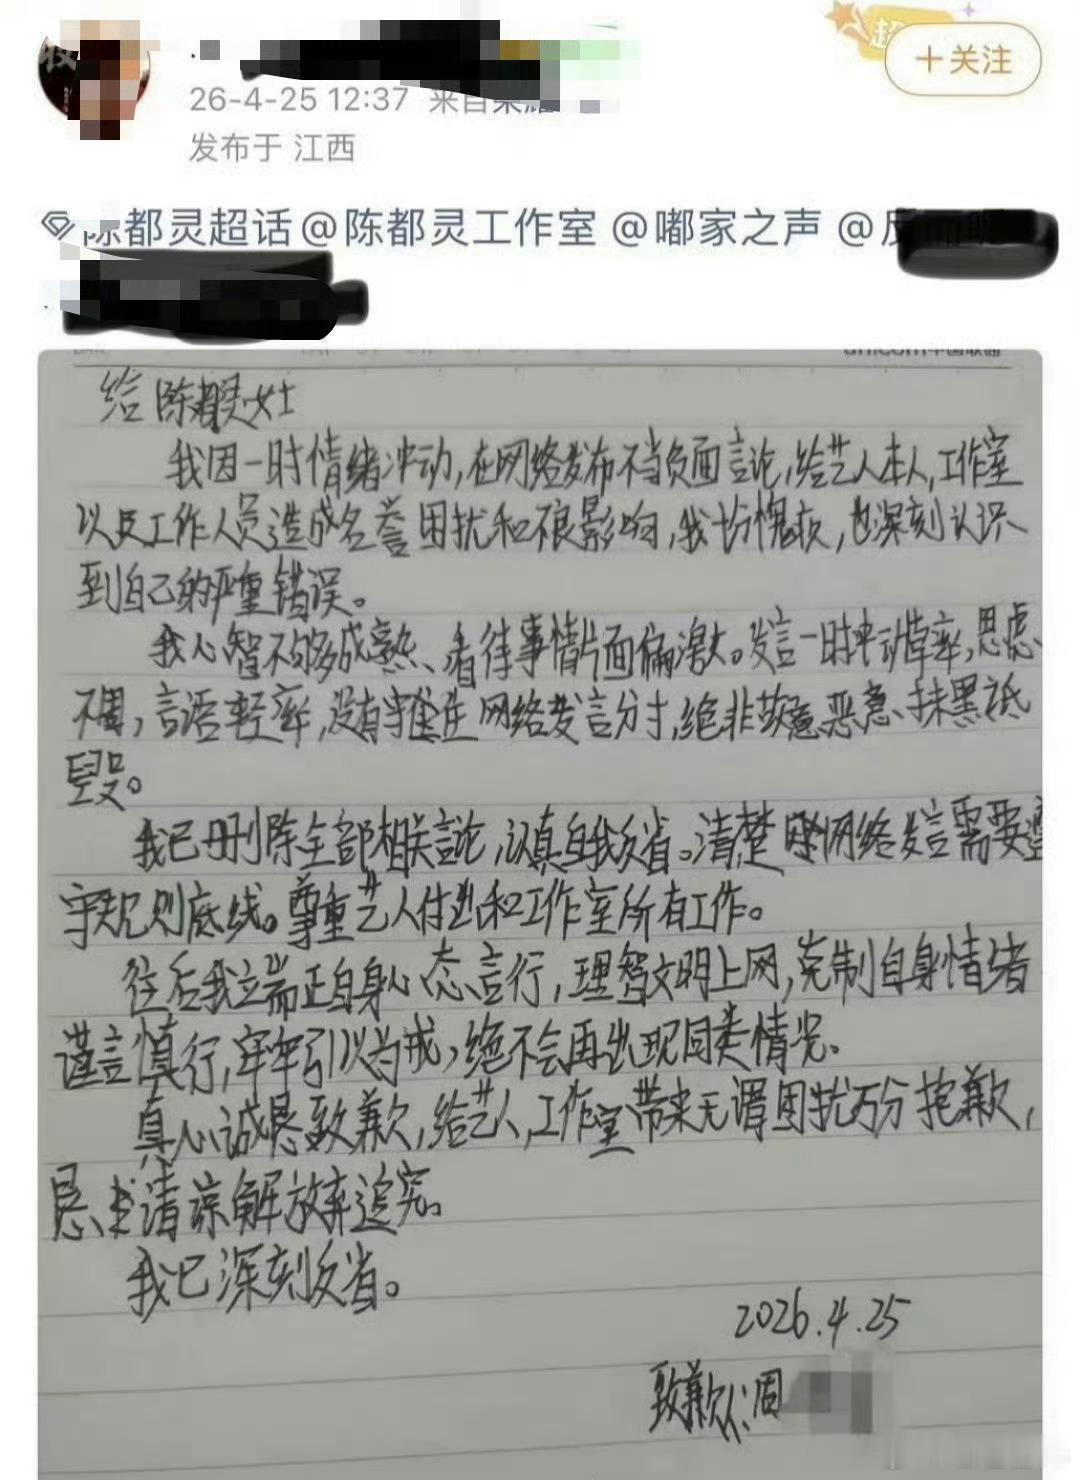 超
十关注
26-4-25 12:37 来自荣耀
发布于 江西
陈都灵超话@陈都灵工作室 @嘟家之声 @反
unicom中国联通
给陈都灵女士
我因一时情绪冲动,在网络发布不当负面言论,给艺人本人,工作室
以及工作人员造成名誉困扰和不良影响,我十分愧疚,也深刻认识
到自己的严重错误。
我心智不够成熟、看待事情片面偏激。发言一时冲动草率,思虑
不周,言语轻率,没有掌握住网络发言分寸,绝非故意恶意、抹黑诋
毁。
我已删除全部相关言论,认真自我反省。清楚网络发言需要遵
守规则底线。尊重艺人付出和工作室所有工作。
往后我立端正自身心态言行,理智文明上网,克制自身情绪
谨言慎行,牢牢引以为戒,绝不会再出现同类情况。
真心诚恳致歉,给艺人,工作室带来无谓困扰万分抱歉,
恳请谅解放弃追究。
我已深刻反省。
2026.4.25
致歉人:周